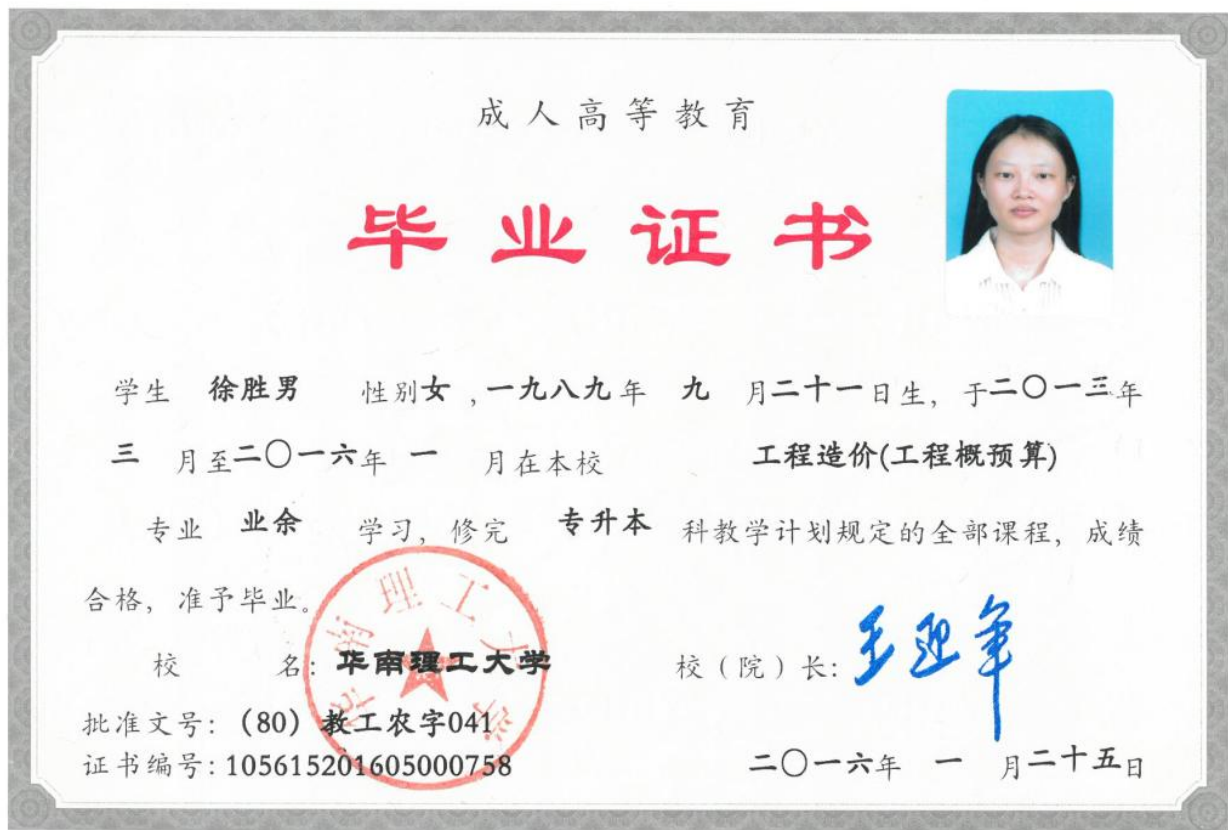 成人高等教育
毕业证书
学生 徐胜男 性别女,一九八九年 九 月二十一日生，于二〇一三年
三 月至二〇一六年 一 月在本校 工程造价(工程概预算)
专业 业余 学习，修完 专升本 科教学计划规定的全部课程，成绩
合格，准予毕业。
校 名：华南理工大学
华南理工大学
校（院）长：王迎军
批准文号：（80）教工农字041
证书编号：105615201605000758
二〇一六年 一 月二十五日